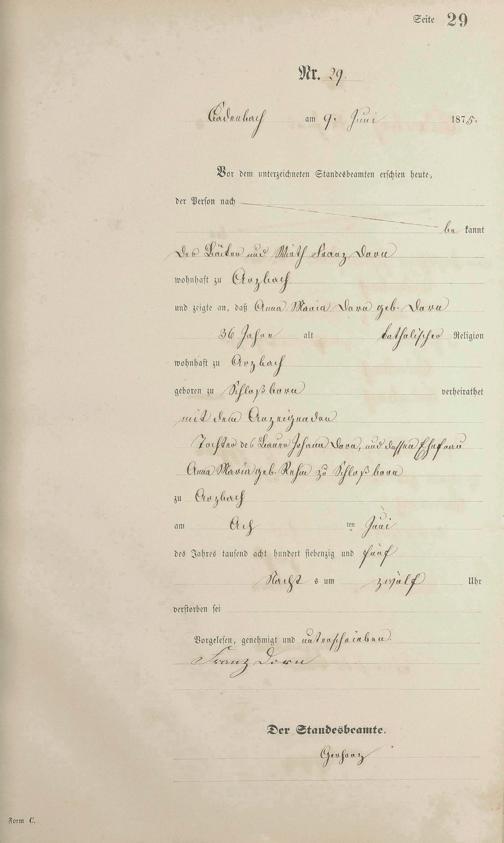 Seite 29
Nr. 29.
Cadenbach am 9. Juni 1875.
Vor dem unterzeichneten Standesbeamten erschien heute,
der Person nach
be kannt
der Bäcker und Wirth Franz Dorn
wohnhaft zu Arzbach
und zeigte an, daß Anna Maria Dorn geb. Dorn
36 Jahre alt katholischer Religion
wohnhaft zu Arzbach
geboren zu Schloßborn verheirathet
mit dem Anzeigenden
Tochter des Bauer Johann Dorn, und dessen Ehefrau
Anna Maria geb. Rehm zu Schloßborn
zu Arzbach
am Ach ten Juni
des Jahres tausend acht hundert siebenzig und fünf
Nacht s um zwölf Uhr
verstorben sei
Vorgelesen, genehmigt und unterschrieben.
Franz Dorn
Der Standesbeamte.
Form C.